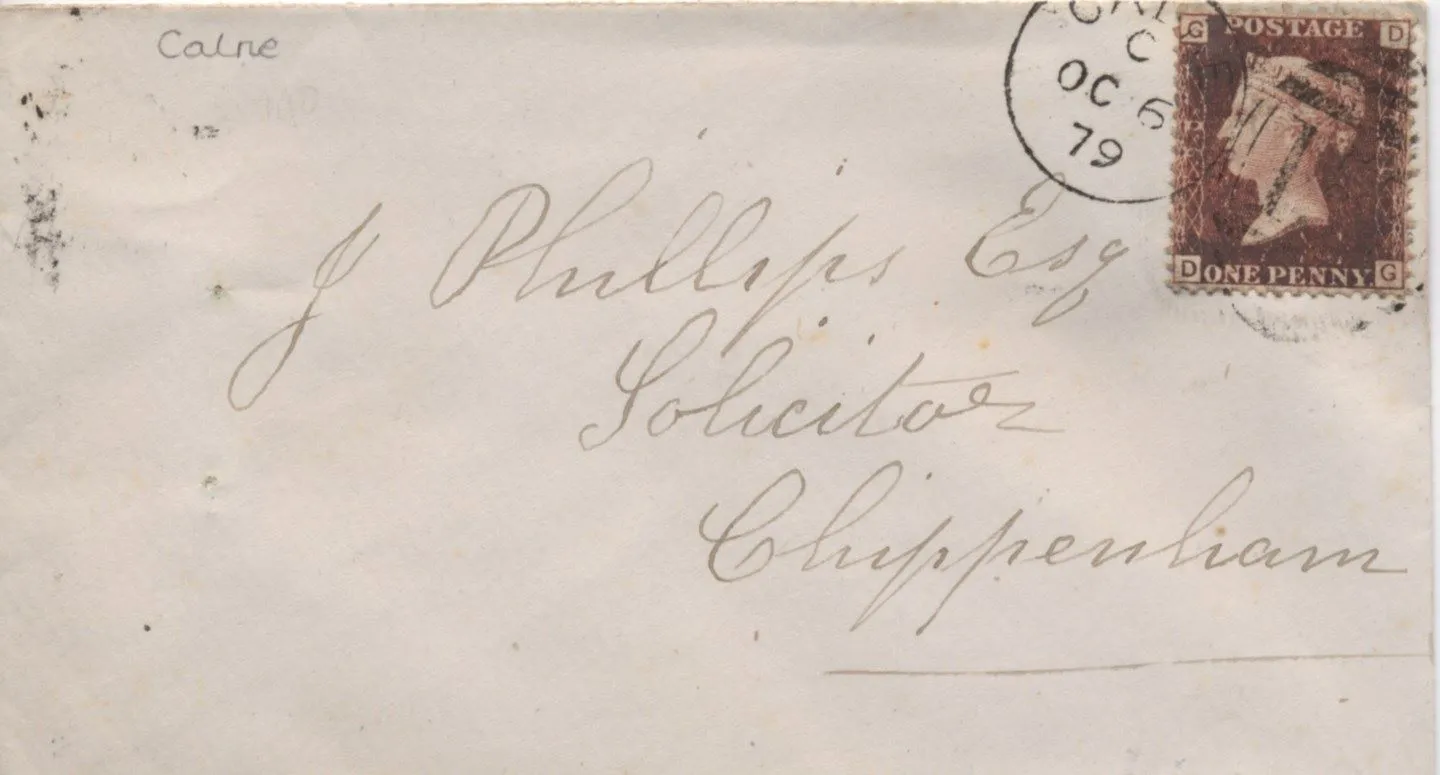 Calne
C
OC 6
79
G POSTAGE D
D ONE PENNY. G
J Phillips Esq
Solicitor
Chippenham